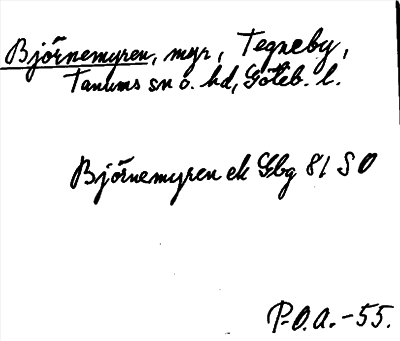 Björnemyren, myr, Tegneby,
Tanums sn o. hd, Göteb. l.
Björnemyren ek Gbg 81 SO
P-O.A.-55.